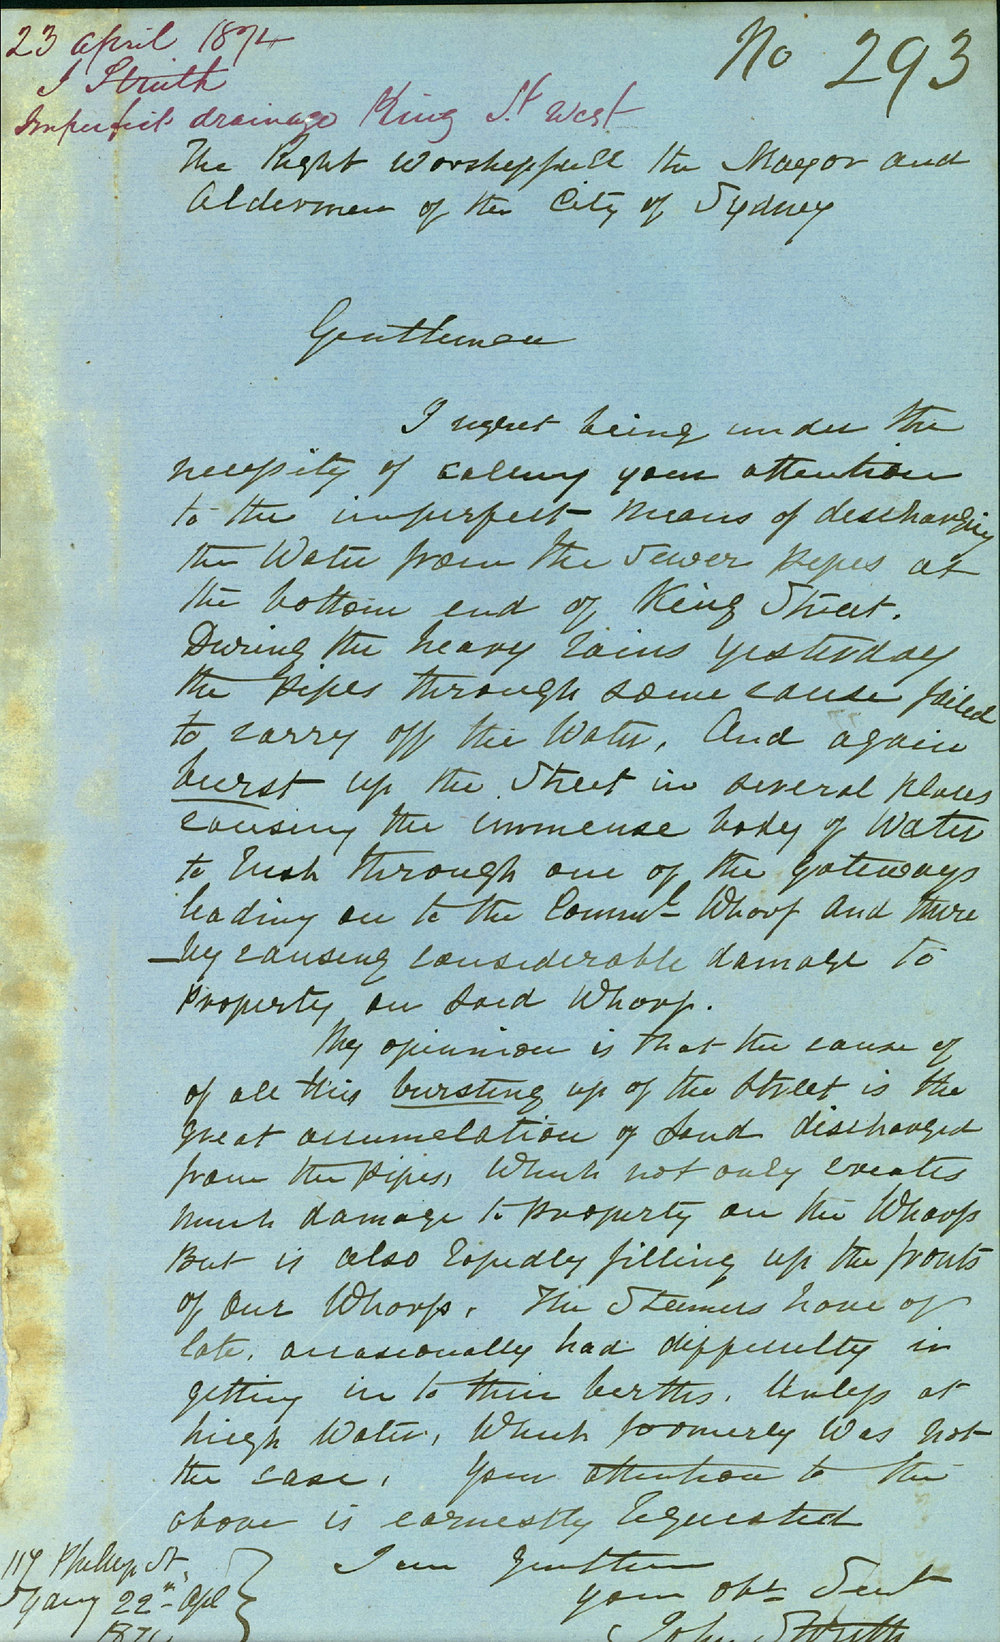 23 April 1874
J Struth
Imperfect drainage King St West
No 293
The Right Worshippfull the Mayor and
Aldermen of the City of Sydney
Gentlemen
I regret being under the
necessity of calling your attention
to the imperfect means of discharging
the Water from the Sewer Pipes at
the bottom end of King Street.
During the heavy rains yesterday
the Pipes through some cause failed
to carry off the Water, And again
burst up the Street in several places
causing the immense body of Water
to rush through one of the Gateways
leading on to the Comml Wharf and there
-by causing considerable damage to
Property on said Wharf.
My opinnion is that the cause of
of all this bursting up of the Street is the
great accumelation of Sand discharged
from the Pipes, Which not only creates
much damage to Property on the Wharf
But is also rapedly filling up the fronts
of our Wharfs. The Steamers have of
late, occasionally had diffeculty in
getting in to their berths, Unless at
high Water, Which formerly Was not
the case, Your attention to the
above is earnestly requested
I am Gentlemen
Your Obt Servt
John Struth
119 Phillip St,
Sydney 22nd Apl
1874